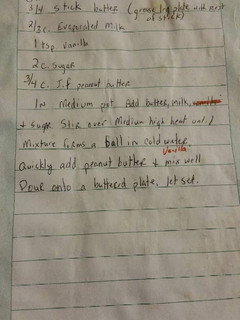 3/4 stick butter (grease lrg plate with rest of stick)
2/3 c. Evaporated milk
1 tsp vanilla
2 c. sugar
3/4 c. J.F peanut butter
In medium pot Add butter, milk,
+ sugar Stir over Medium high heat until
Mixture forms a ball in cold water.
Vanilla
Quickly add peanut butter & mix well
Pour onto a buttered plate, let set.